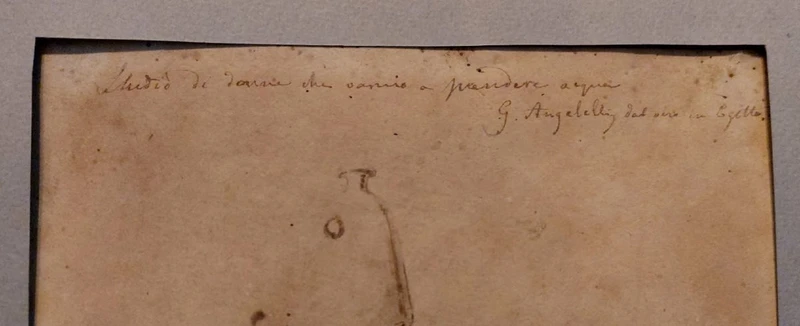 Studio di donne che vanno a prendere acqua
G. Angelelli, dal vivo in Egitto.